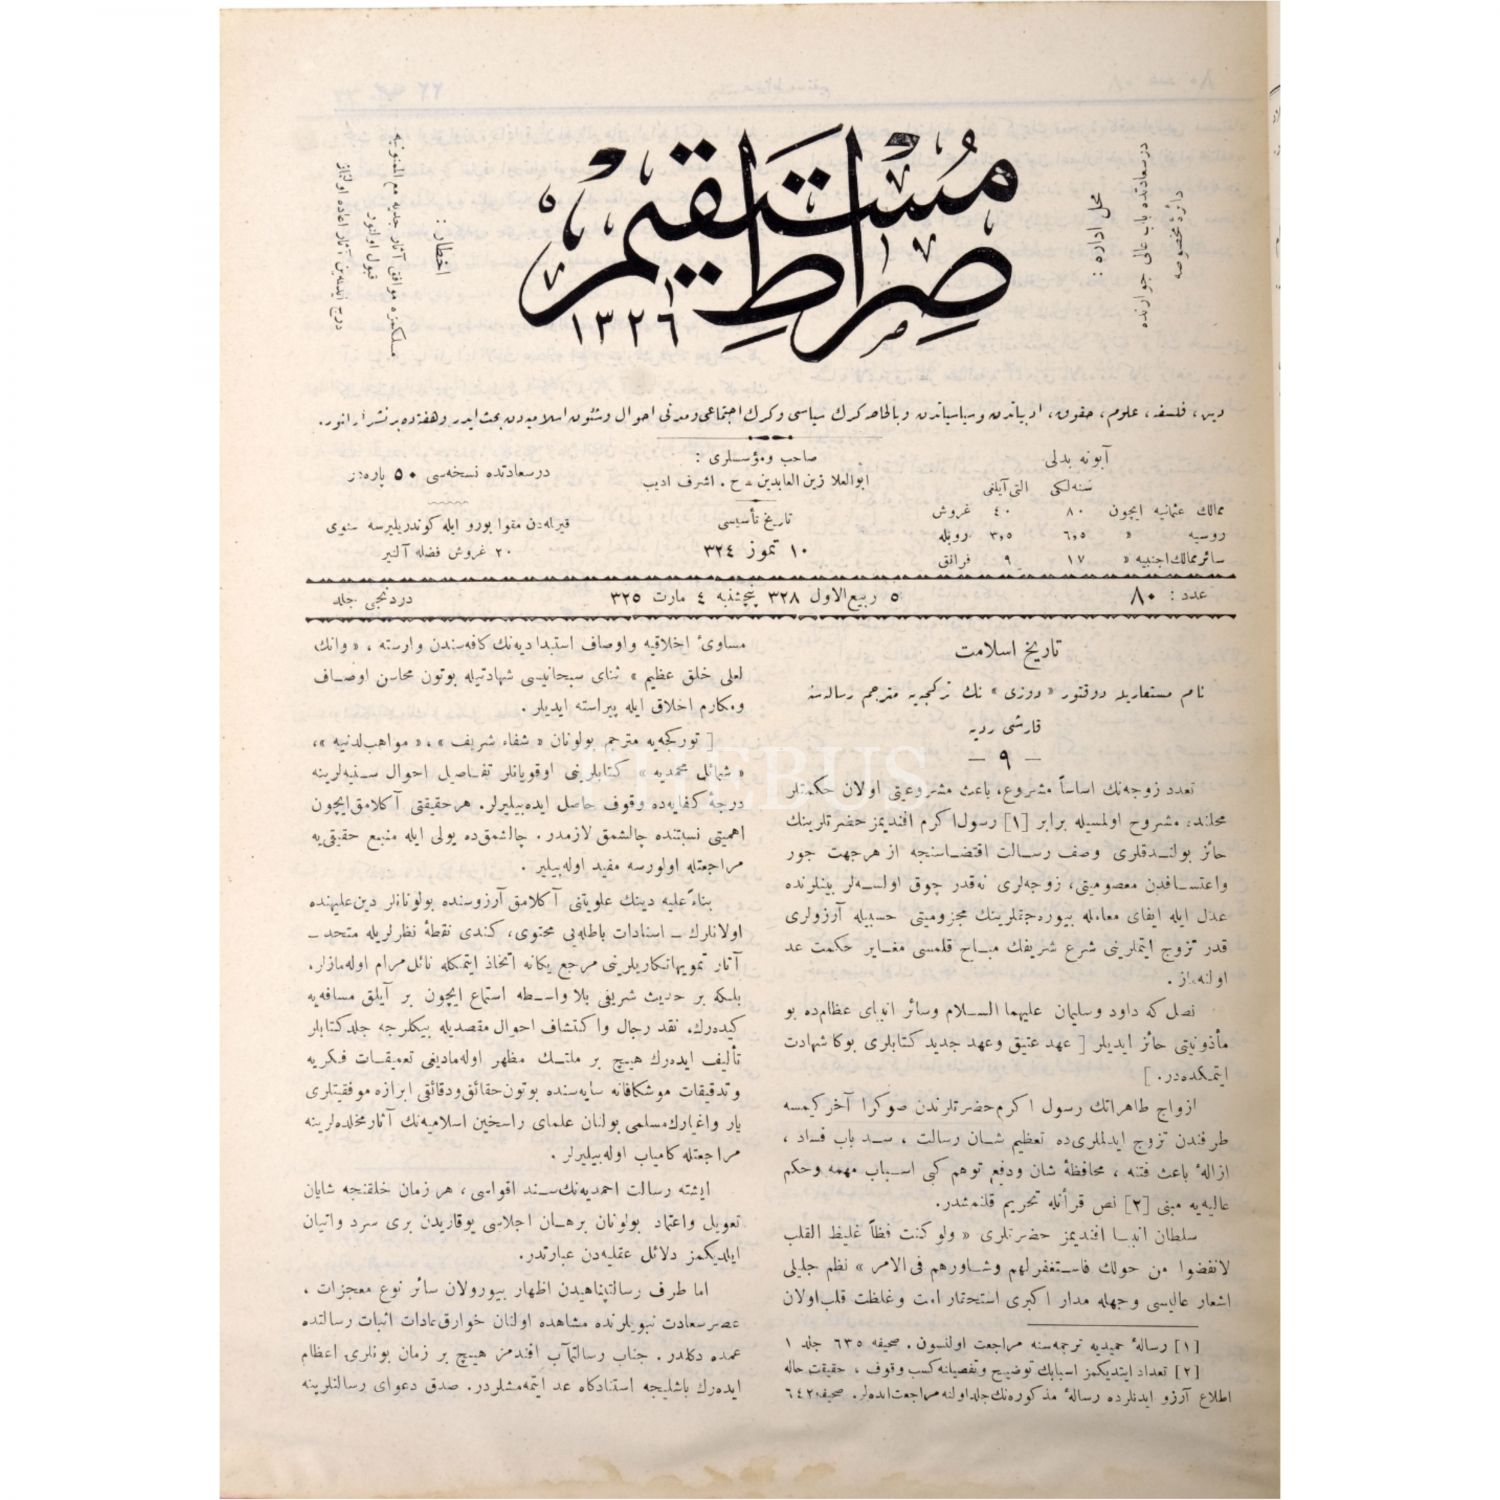 صراط مستقيم
١٣٢٦
محل اداره :
درسعادتده باب عالی جوارنده
دائرهٔ مخصوصه
اخطار :
مسلكمزه موافق آثار جديه مع الممنونيه
قبول اولنور
درج ايدلمه‌ين آثار اعاده اولنماز
دين، فلسفه، علوم، حقوق، ادبياتدن وسياسياتدن وبالخاصه كرك سياسی وكرك اجتماعی ومدنی احوال وشئون اسلاميه‌دن بحث ايدر وهفته‌ده بر نشر اولنور.
آبونه بدلی
سنه‌لكی التی آيلغی
ممالك عثمانيه ايچون ٨٠ ٤٠ غروش
روسيه « ٦,٥ ٣,٥ روبله
سائر ممالك اجنبيه « ١٧ ٩ فرانق
صاحب ومؤسسلری :
ابوالعلا زين العابدين – ح . اشرف اديب
تاريخ تأسيسی
١٠ تموز ٣٢٤
درسعادتده نسخه‌سی ٥٠ پاره‌در
قيرلمه‌دن مقوا بورو ايله كوندريليرسه سنوی
٢٠ غروش فضله آلنير
عدد : ٨٠
٥ ربيع الاول ٣٢٨ پنجشنبه ٤ مارت ٣٢٥
دردنجی جلد
تاريخ اسلاميت
نام مستعاريله دوقتور « دوزی » نك تركجه‌يه مترجم رساله‌سنه
قارشی رديه
— ٩ —
تعدد زوجه‌نك اساساً مشروع، باعث مشروعيتی اولان حكمتلر
محلنده مشروح اولمسيله برابر [١] رسول اكرم افنديمز حضرتلرينك
حائز بولنـدقلری وصف رسـالت اقتضـاسنجه از هر جهت جور
واعتسـافدن معصوميتی، زوجه‌لری نه‌قدر چوق اولسـه‌لر بينلرنده
عدل ايله ايفای معامله بيوره‌جقلرينك مجزوميتی حسبيله آرزولری
قدر تزوج ايتملرينی شرع شريفك مبـاح قلمسی مغـاير حكمت عد
اولنه‌ماز .
نصل كه داود وسليمان عليهما السـلام وسائر انبيای عظام‌ده بو
مأذونيتی حائز ايديلر [ عهد عتيق وعهد جديد كتابلری بوكا شهادت
ايتمكده‌در . ]
ازواج طاهراتك رسول اكرم حضرتلرندن صوكرا آخر كيمسه
طرفندن تزوج ايدلملری‌ده تعظيم شـان رسالت ، سـد باب فساد ،
ازالهٔ باعث فتنه ، محافظهٔ شان ودفع توهم كبی اسـباب مهمه وحكم
عاليه‌يه مبنی [٢] نص قرأنله تحريم قلنمشدر.
سلطان انبيـا افنديمز حضرتلری « ولو كنت فظاً غليظ القلب
لانفضوا من حولك فاستغفر لهم وشاورهم فی الامر » نظم جليلی
اشعار عاليسی وجهله مدار اكبری استحقار امت وغلظت قلب اولان
[١] رسالهٔ حميديه ترجمه‌سنه مراجعت اولنسون . صحيفه ٦٣٥ جلد ١
[٢] تعداد ايتديكمز اسبابك توضيح وتفصيلانه كسب وقوف ، حقيقت حاله
اطلاع آرزو ايدنلرده رسالهٔ مذكوره‌نك جلد اولنه مراجعت ايده‌لر. صحيفه ٦٤٢
مساوئ اخلاقيه واوصاف استبداديه‌نك كافه‌سندن وارسته ، « وانك
لعلی خلق عظيم » ثنای سبحانيسی شهادتيله بوتون محاسن اوصـاف
ومكارم اخلاق ايله پيراسته ايديلر .
[ توركجه‌يه مترجم بولونان « شفاء شريف » ، « مواهب لدنيه » ،
« شمائل محمديه » كتابلرينی اوقويانلر تفـاصيل احوال سـنيه‌لرينه
درجهٔ كفايه‌ده وقوف حاصل ايده‌بيليرلر. هر حقيقتی آكلامق ايچون
اهميتی نسبتنده چالشمق لازمدر. چالشمق‌ده يولی ايله منبع حقيقی‌يه
مراجعتله اولورسه مفيد اوله‌بيلير .
بناءً عليه دينك علويتنی آكلامق آرزوسنده بولونانلر دين عليهنده
اولانلرك ـ اسنادات باطله‌يی محتوی، كندی نقطهٔ نظرلريله متحد ـ
آثار تمويهانكاريلرينی مرجع يكانه اتخاذ ايتمكله نائل مرام اوله‌مازلر.
بلكه بر حديث شريفی بلا واسـطه استماع ايچون بر آيلق مسافه‌يه
كيده‌رك. نقد رجال واكتشاف احوال مقصديله بيكلرجه جلد كتابلر
تأليف ايده‌رك هيـچ بر ملتـك مظهر اوله‌ماديغی تعميقـات فكريه
وتدقيقات موشكافانه سايه‌سنده بوتون حقائق ودقائقی ابرازه موفقيتلری
يار واغيارك مسلمی بولنان علمای راسخين اسلاميه‌نك آثار مخلده‌لرينه
مراجعتله كامياب اوله‌بيليرلر .
ايشته رسالت احمديه‌نك سـند اقواسی ، هر زمان خلقنجه شايان
تعويل واعتماد بولونان برهـان اجلاسی يوقاريدن بری سرد واتيان
ايلديكمز دلائل عقليه‌دن عبارتدر.
اما طرف رسالتپناهيدن اظهار بيورولان سائر نوع معجزات ،
عصر سعادت نبويلرنده مشاهده اولنان خوارق عادات اثبات رسالتده
عمده دكلدر . جناب رسالتمآب افندمز هيـچ بر زمان بونلری اعظام
ايده‌رك باشليجه استنادكاه عد ايتمه‌مشلردر. صدق دعوای رسالتلرينه
PHEBUS